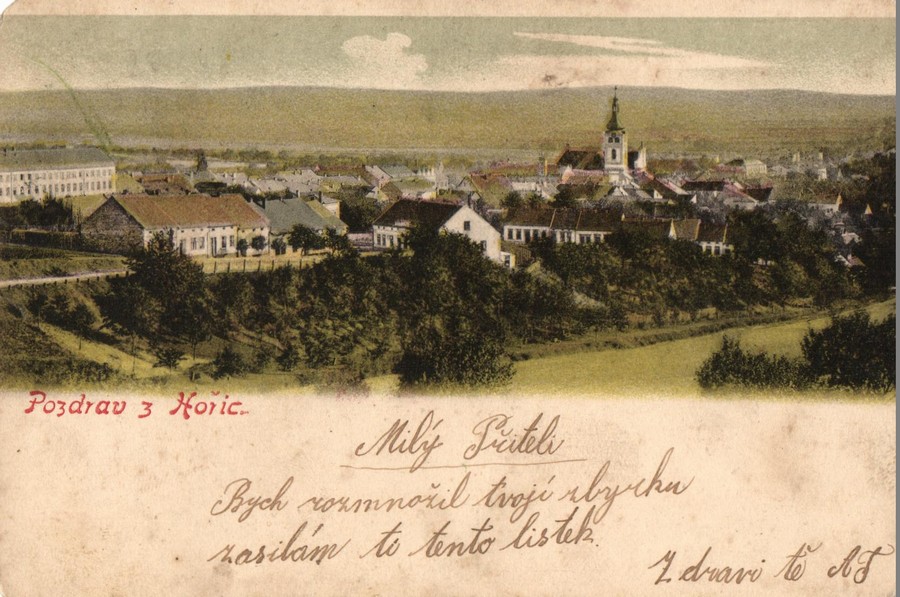 Pozdrav z Hořic.
Milý Příteli
Bych rozmnožil tvojí zbyrku
zasilám ti tento listek.
Zdravi tě AT